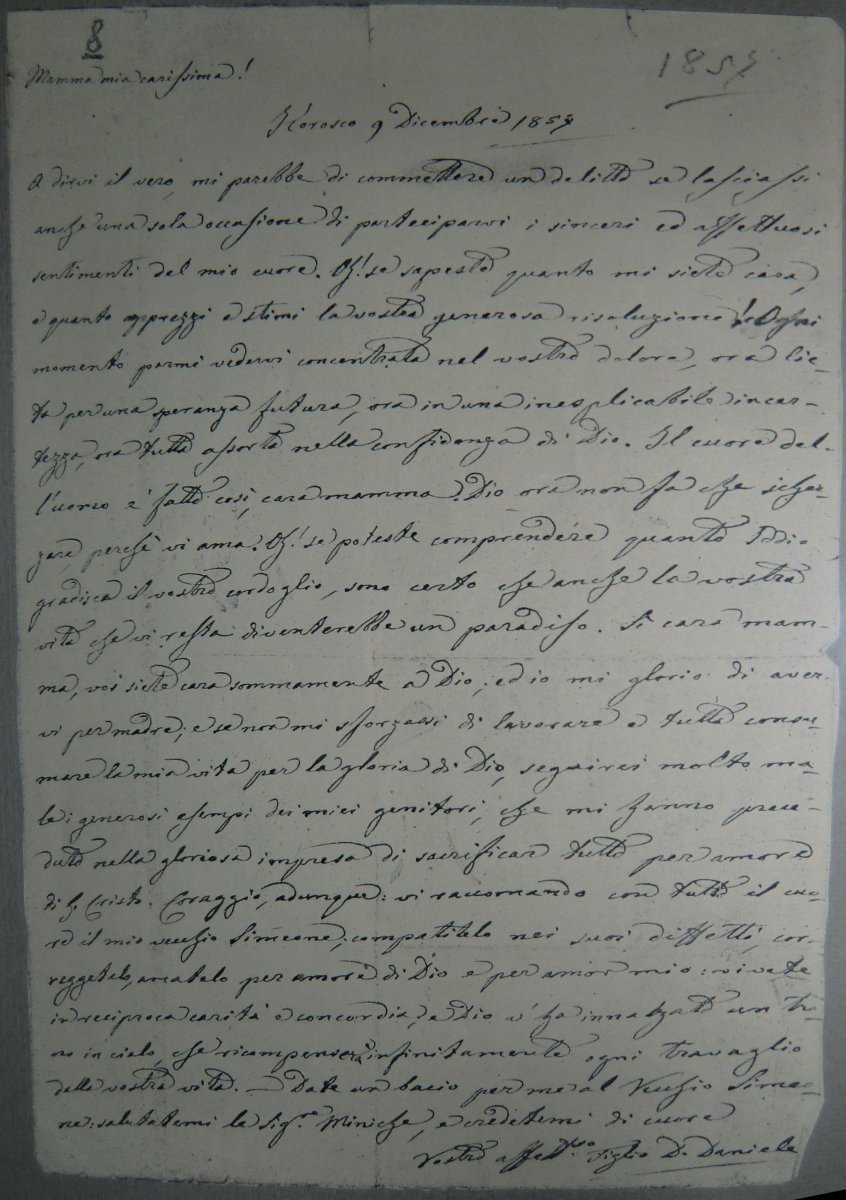 8
1857
Mamma mia carissima!
Korosco 9 Dicembre 1857
A dirvi il vero, mi parebbe di commettere un delitto se lasciassi
anche una sola occasione di parteciparvi i sinceri ed affettuosi
sentimenti del mio cuore. Oh! se sapeste quanto mi siete cara,
e quanto apprezzi e stimi la vostra generosa risoluzione! Ogni
momento parmi vedervi concentrata nel vostro dolore, ora lie-
ta per una speranza futura, ora in una inesplicabile incer-
tezza, ora tutta assorta nella confidenza di Dio. Il cuore del-
l'uomo e' fatto così, cara mamma. Dio ora non fa che scher-
zare perchè vi ama. Oh! se poteste comprendere quanto Iddio
gradisca il vostro cordoglio, sono certo che anche la vostra
vita che vi resta diventerebbe un paradiso. Si cara mam-
ma, voi siete cara sommamente a Dio; ed io mi glorio di aver-
vi per madre; e se non mi sforzassi di lavorare e tutta consu-
mare la mia vita per la gloria di Dio, seguirei molto ma-
le i generosi esempi dei miei genitori, che mi hanno prece-
duto nella gloriosa impresa di sacrificar tutto per amore
di G. Cristo. Coraggio, adunque: vi raccomando con tutto il cuo-
re il mio vecchio Simeone; compatitelo nei suoi diffetti, cor-
reggetelo, amatelo per amore di Dio e per amor mio: vivete
in reciproca carità e concordia, e Dio v'ha innalzato un tro-
no in cielo, che ricompenserà infinitamente ogni travaglio
della vostra vita. — Date un bacio per me al Vecchio Simeo-
ne: salutatemi le Sig.re Miniche, e credetemi di cuore
Vostro affett.mo figlio D. Daniele